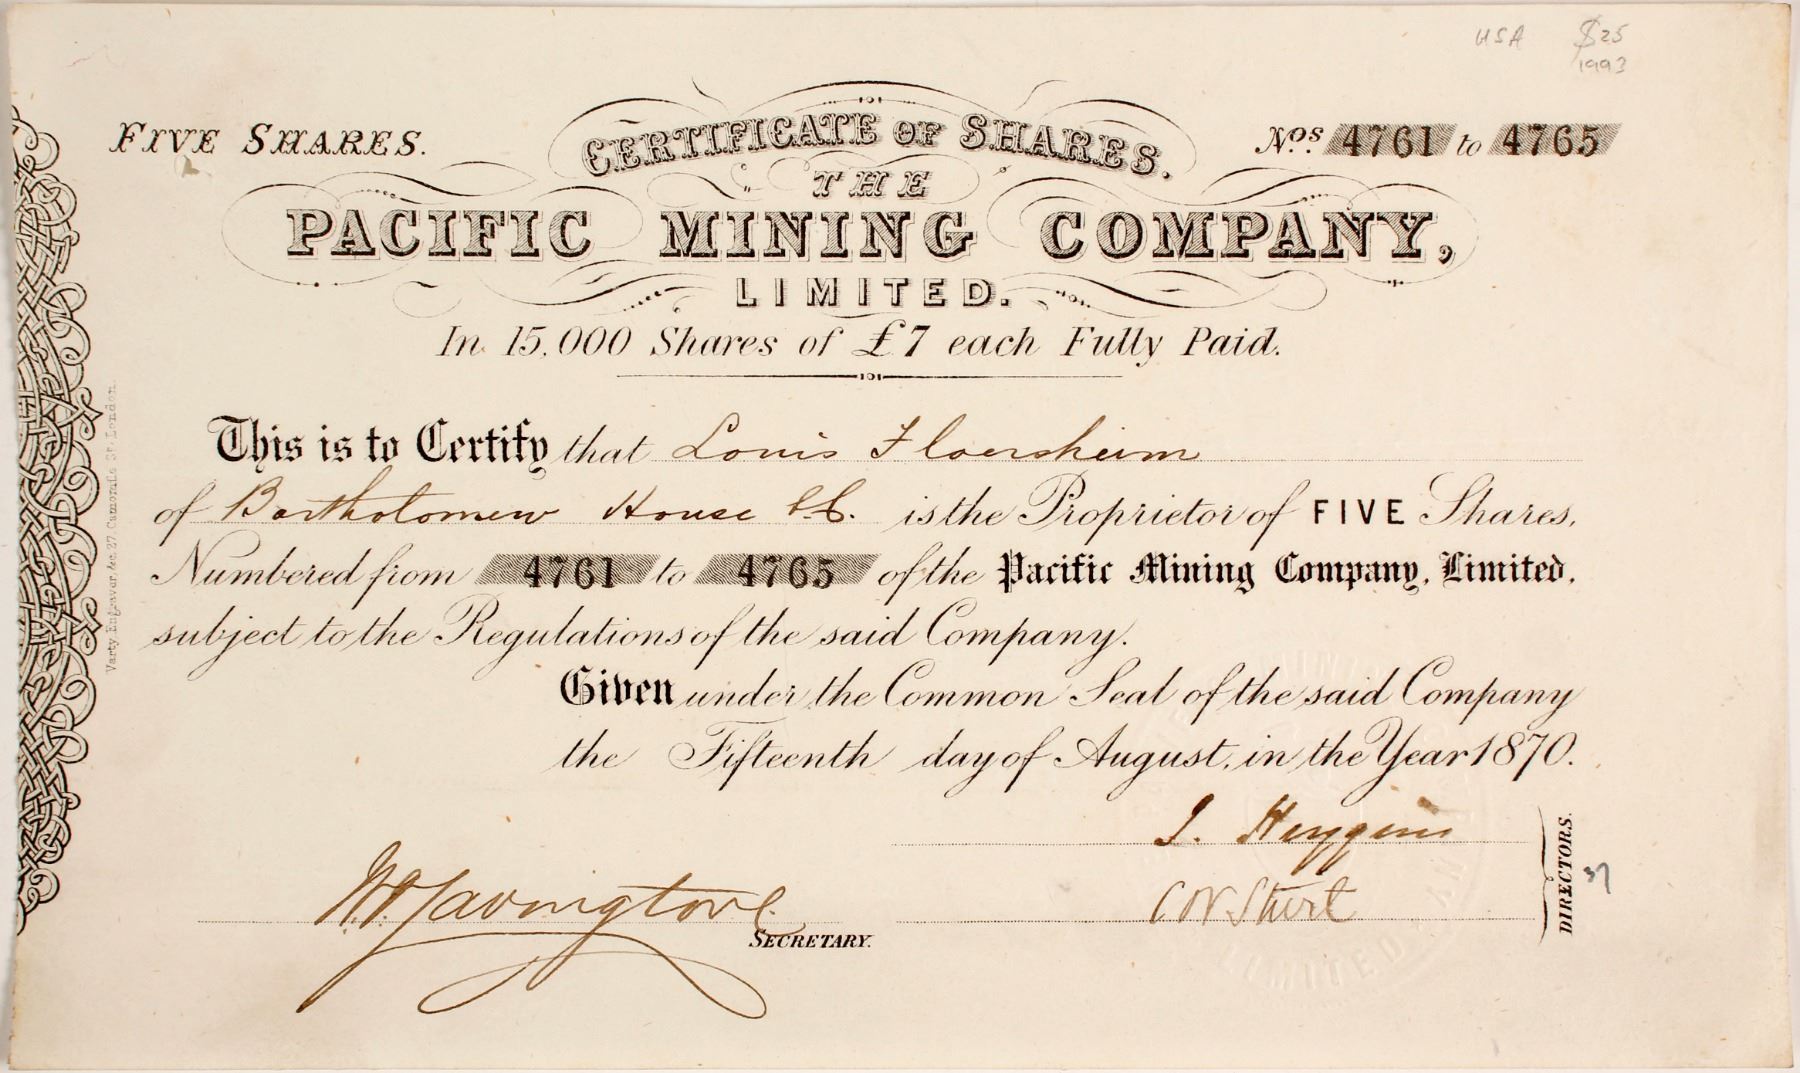 USA $25
1993
FIVE SHARES.
CERTIFICATE OF SHARES.
Nos. 4761 to 4765
THE
PACIFIC MINING COMPANY,
LIMITED.
In 15,000 Shares of £7 each Fully Paid.
This is to Certify that Louis Floersheim
of Bartholomew House E.C. is the Proprietor of FIVE Shares,
Numbered from 4761 to 4765 of the Pacific Mining Company, Limited,
subject to the Regulations of the said Company.
Given under the Common Seal of the said Company
the Fifteenth day of August, in the Year 1870.
J. Huggins
C N Sturt
DIRECTORS.
37
SECRETARY.
Varty, Engraver, &c. 27, Camomile St. London.
LIMITED